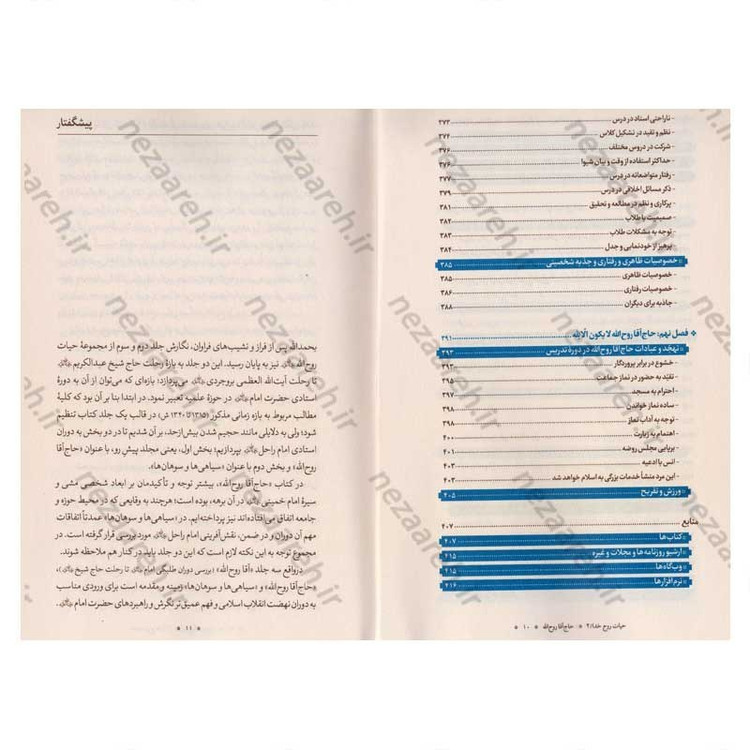 - ناراحتی استاد در درس ۳۷۳
- نظم و تقید در تشکیل کلاس ۳۷۴
- شرکت در دروس مختلف ۳۷۶
- حداکثر استفاده از وقت و بیان شیوا ۳۷۶
- رفتار متواضعانه در درس ۳۷۷
- ذکر مسائل اخلاقی در درس ۳۷۹
- پرکاری و نظم در مطالعه و تحقیق ۳۸۱
- صمیمیت با طلاب ۳۸۲
- توجه به مشکلات طلاب ۳۸۳
- پرهیز از خودنمایی و جدل ۳۸۴
خصوصیات ظاهری و رفتاری و جذبه شخصیتی ۳۸۵
- خصوصیات ظاهری ۳۸۵
- خصوصیات رفتاری ۳۸۶
- جاذبه برای دیگران ۳۸۸
فصل نهم: حاج‌آقا روح‌الله لا یکون الّا لِلّه ۳۹۱
تهجّد و عبادات حاج‌آقا روح‌الله در دورهٔ تدریس ۳۹۳
- خشوع در برابر پروردگار ۳۹۳
- تقیّد به حضور در نماز جماعت ۳۹۵
- احترام به مسجد ۳۹۷
- ساده نماز خواندن ۳۹۸
- توجه به آداب نماز ۳۹۸
- اهتمام به زیارت ۴۰۰
- برپایی مجلس روضه ۴۰۱
- انس با ادعیه ۴۰۲
- این مرد منشأ خدمات بزرگی به اسلام خواهد شد ۴۰۳
ورزش و تفریح ۴۰۵
منابع ۴۰۷
کتاب‌ها ۴۰۷
آرشیو روزنامه‌ها و مجلات و غیره ۴۱۵
وب‌گاه‌ها ۴۱۵
نرم‌افزارها ۴۱۶
حیات روح خدا/۲ * حاج‌آقا روح‌الله * ۱۰ *
پیشگفتار
بحمدالله پس از فراز و نشیب‌های فراوان، نگارش جلد دوم و سوم از مجموعهٔ حیات
روح‌الله نیز به پایان رسید. این دو جلد به بازه رحلت حاج شیخ عبدالکریم
تا رحلت آیت‌الله العظمی بروجردی می‌پردازد؛ بازه‌ای که می‌توان از آن به دورهٔ
استادی حضرت امام در حوزهٔ علمیه تعبیر نمود. در ابتدا بنا بر آن بود که کلیهٔ
مطالب مربوط به بازه زمانی مذکور (۱۳۱۵ تا ۱۳۴۰ ش) در قالب یک جلد کتاب تنظیم
شود؛ ولی به دلایلی مانند حجیم شدن بیش‌ازحد، بر آن شدیم تا در دو بخش به دوران
استادی امام راحل بپردازیم؛ بخش اول، یعنی مجلد پیش رو، با عنوان «حاج‌آقا
روح‌الله» و بخش دوم با عنوان «سیاهی‌ها و سوهان‌ها».
در کتاب «حاج‌آقا روح‌الله»، بیشتر توجه و تأکیدمان بر ابعاد شخصی مشی و
سیرهٔ امام خمینی در آن برهه، بوده است؛ هرچند به وقایعی که در محیط حوزه و
جامعه اتفاق می‌افتاده‌اند نیز پرداخته‌ایم. در «سیاهی‌ها و سوهان‌ها» عمدتاً اتفاقات
مهم آن دوران و در ضمن، نقش‌آفرینی امام راحل مورد بررسی قرار گرفته است. در
مجموع توجه به این نکته لازم است که این دو جلد باید در کنار هم ملاحظه شوند.
درواقع سه جلد «آقا روح‌الله» (بررسی دوران طلبگی امام تا رحلت حاج شیخ)،
«حاج‌آقا روح‌الله» و «سیاهی‌ها و سوهان‌ها» زمینه و مقدمه است برای ورودی مناسب
به دوران نهضت انقلاب اسلامی و فهم عمیق‌تر نگرش و راهبردهای حضرت امام.
* ۱۱ *
nezaareh.ir